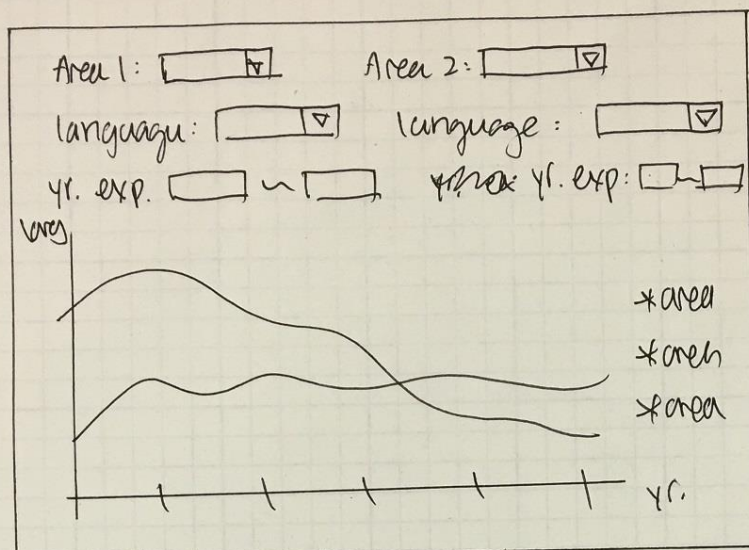 Area 1: Area 2:
language: language:
yr. exp. ~ yr. exp: ~
*area
*area
*area
yr.